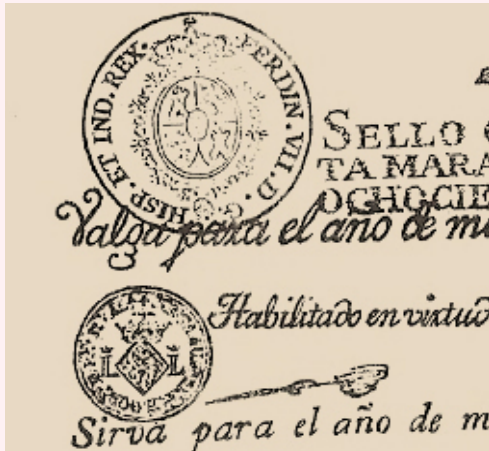 FERDIN. VII. D. G. HISP. ET IND. REX.
SELLO
TA MARA
OCHOCIE
Valga para el año de m
Habilitado en virtud
L L
Sirva para el año de m